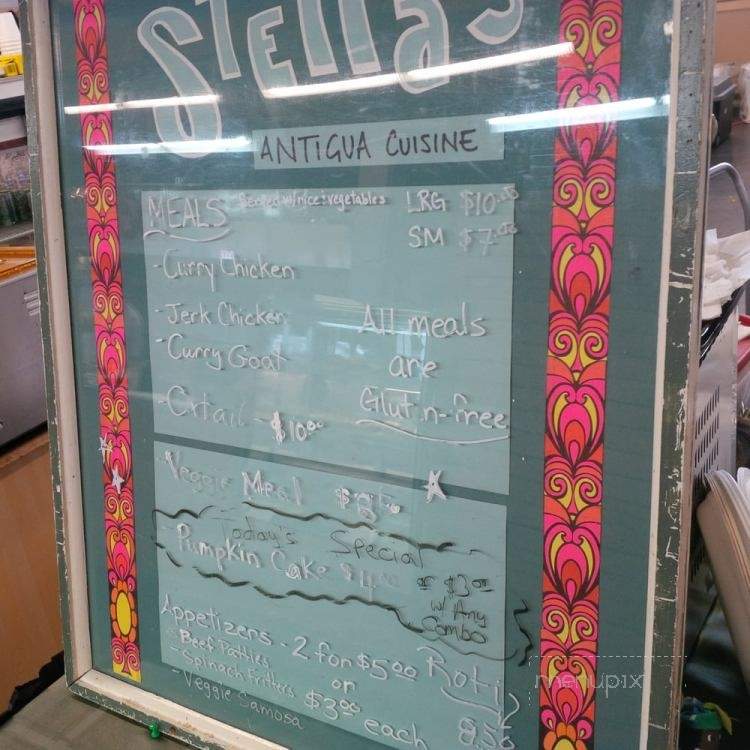 Stella's
ANTIGUA CUISINE
MEALS Served w/rice & vegetables LRG $10.00
SM $7.00
- Curry Chicken
- Jerk Chicken
- Curry Goat
All meals
are
Gluten-free
- Oxtail - $10.00
- Veggie Meal
Today's Special
- Pumpkin Cake $4 or $3.00
w/ Any
Combo
Appetizers - 2 for $5.00
or
$3.00 each
- Beef Patties
- Spinach Fritters
- Veggie Samosa
Roti
8.50
menupix